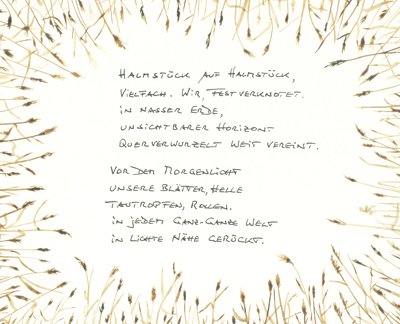 Halmstück auf Halmstück,
vielfach. Wir, festverknotet.
in nasser Erde,
unsichtbarer Horizont
querverwurzelt weit vereint.
Vor dem Morgenlicht
unsere Blätter, helle
Tautropfen, Rollen.
in jedem Ganz-Ganze Welt
in lichte Nähe gerückt.